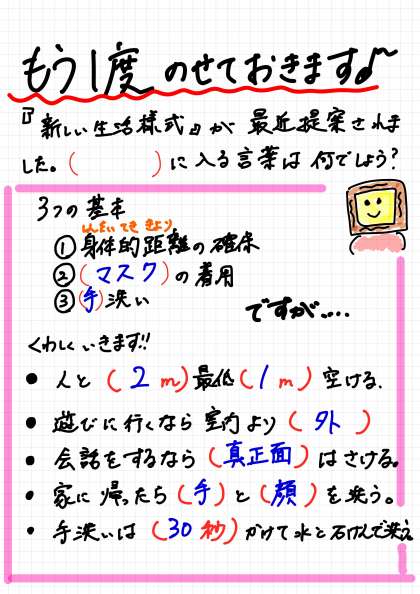 もう1度 のせておきます♪
『新しい生活様式』が 最近提案されま
した。(　　　)に入る言葉は何でしょう?
3つの基本
しんたいてき きょり
①身体的距離の確保
②(マスク)の着用
③(手)洗い
ですが....
くわしくいきます!!
● 人と(2m)最低(1m)空ける.
● 遊びに行くなら室内より(外)
● 会話をするなら(真正面)はさける。
● 家に帰ったら(手)と(顔)を洗う。
● 手洗いは(30秒)かけて水と石けんで洗う